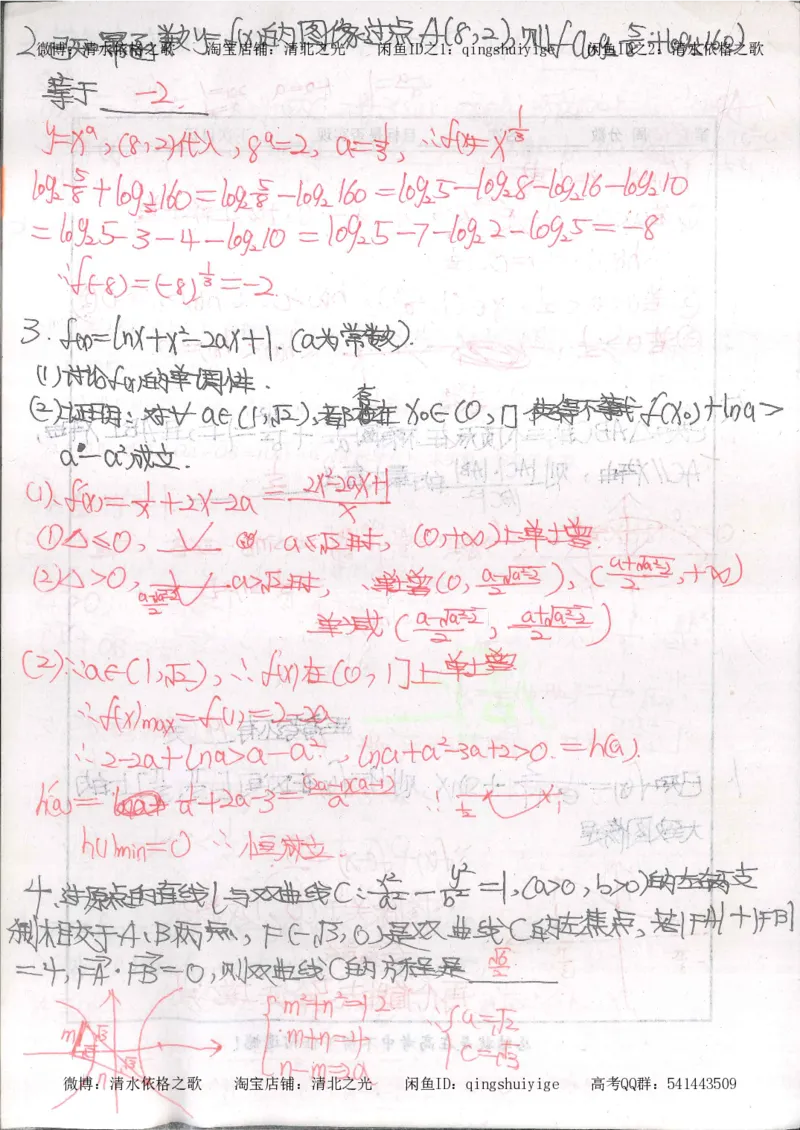 2.已知幂函数y=f(x)的图像过点A(8,2),则f(log₂5/8+log_{1/2}160)
微博：清水依格之歌 淘宝店铺：清北之光 闲鱼ID之1：qingshuiyige 闲鱼ID之2：清水依格之歌
等于 -2.
y=xᵃ,(8,2)代入,8ᵃ=2, a=1/3,∴f(x)=x^{1/3}
log₂5/8+log_{1/2}160=log₂5/8-log₂160=log₂5-log₂8-log₂16-log₂10
=log₂5-3-4-log₂10=log₂5-7-log₂2-log₂5=-8
∴f(-8)=(-8)^{1/3}=-2
3.f(x)=lnx+x²-2ax+1.(a为常数).
(1)讨论f(x)的单调性.
(2)证明:对∀a∈(1,√2),都存在x₀∈(0,1]使得不等式f(x₀)+lna>
a-a²成立.
(1)f'(x)=1/x+2x-2a=(2x²-2ax+1)/x
①△≤0, a≤√2时,(0,+∞)上单增.
(2)△>0, a>√2时,单增(0,(a-√(a²-2))/2),((a+√(a²-2))/2,+∞)
(a-√(a²-2))/2
单减((a-√(a²-2))/2,(a+√(a²-2))/2)
(2)∵a∈(1,√2),∴f(x)在(0,1]上单增
∴f(x)max=f(1)=2-2a
∴2-2a+lna>a-a²,lna+a²-3a+2>0.=h(a)
h'(a)=1/a+2a-3=(2a-1)(a-1)/a ∴ 1/2 1
h(1)min=0 ∴恒成立
4.过原点的直线l与双曲线C:x²/a²-y²/b²=1,(a>0,b>0)的左右两支
分别相交于A、B两点,F(-√3,0)是双曲线C的左焦点,若|FA|+|FB|
=4,FA·FB=0,则双曲线C的方程是
m²+n²=12
m+n=4
n-m=2a
a=√2
c=√3
m √3 √3 √3 n
微博：清水依格之歌 淘宝店铺：清北之光 闲鱼ID：qingshuiyige 高考QQ群：541443509